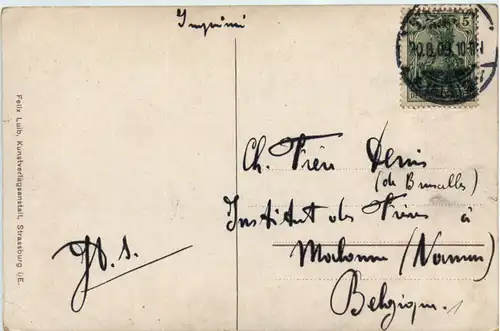 Imprimé
5
20.8.09.10-11
Ch. Frère Denis
(de Bruxelles)
Institut des Frères à
Malonne (Namur)
Belgique.
Felix Luib, Kunstverlagsanstalt, Strassburg i/E.